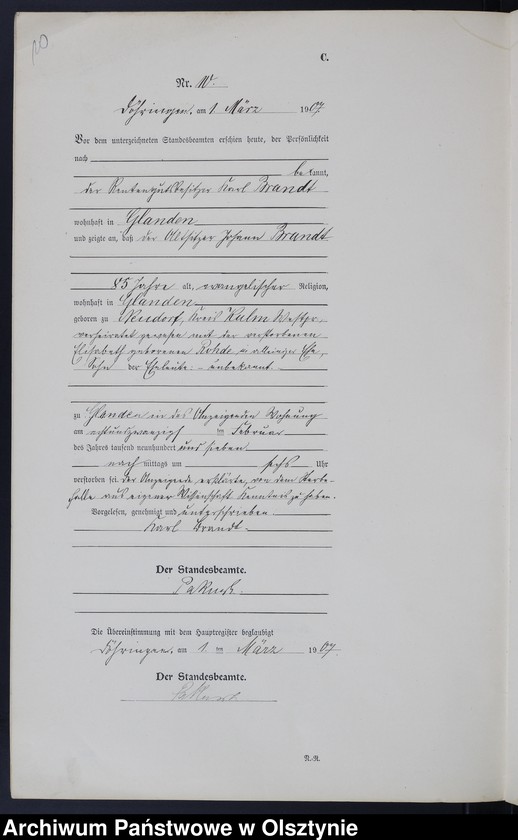 10
C.
Nr. 10.
Döhringen, am 1 März 1907
Vor dem unterzeichneten Standesbeamten erschien heute, der Persönlichkeit
nach
bekannt,
der Rentengutsbesitzer Karl Brandt
wohnhaft in Glanden
und zeigte an, daß der Altsitzer Johann Brandt
85 Jahre alt, evangelischer Religion,
wohnhaft in Glanden
geboren zu Kreis Kulm Westpr.
verheiratet gewesen mit der verstorbenen
Elisabeth geborenen Rohde,
Sohn der Eheleute: - unbekannt.
zu Glanden in des Anzeigenden Wohnung
am achtundzwanzigsten Februar
des Jahres tausend neunhundert und sieben
nach mittags um sechs Uhr
verstorben sei. Der Anzeigende erklärte, von dem Sterbe-
falle aus eigener Wissenschaft Kenntnis zu haben.
Vorgelesen, genehmigt und unterschrieben
Karl Brandt.
Der Standesbeamte.
Die Übereinstimmung mit dem Hauptregister beglaubigt
Döhringen, am 1 ten März 1907.
Der Standesbeamte.
N.-R.
Archiwum Państwowe w Olsztynie